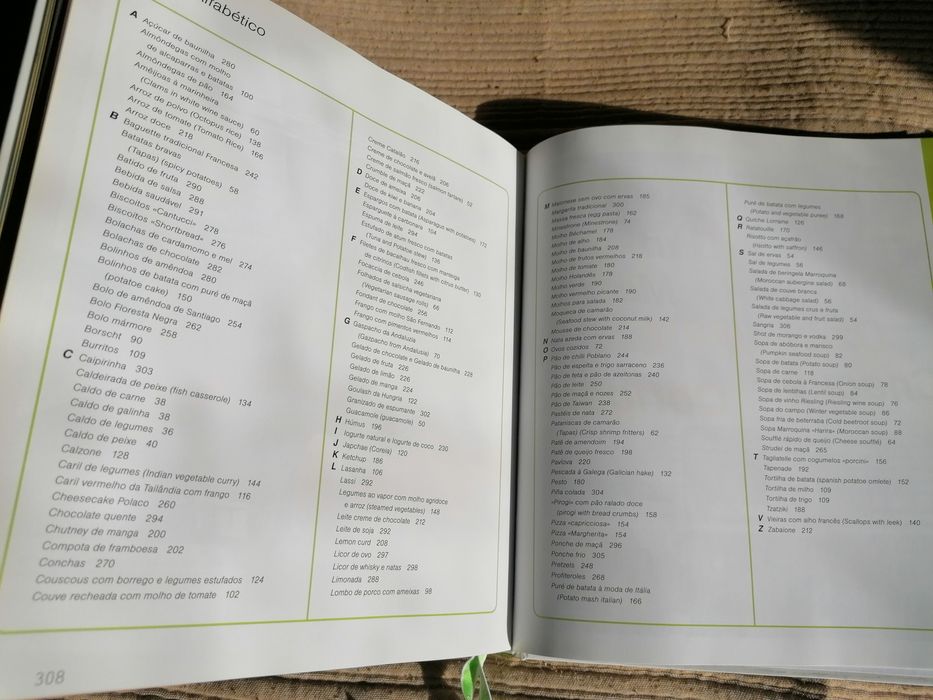 lfabético
A Açúcar de baunilha 280
Almôndegas com molho
de alcaparras e batatas 100
Almôndegas de pão 164
Amêijoas à marinheira
(Clams in white wine sauce) 60
Arroz de polvo (Octopus rice) 138
Arroz de tomate (Tomato Rice) 166
Arroz doce 218
B Baguette tradicional Francesa 242
Batatas bravas
(Tapas) (spicy potatoes) 58
Batido de fruta 290
Bebida de salsa 288
Bebida saudável 291
Biscoitos «Cantucci» 278
Biscoitos «Shortbread» 276
Bolachas de cardamomo e mel 274
Bolachas de chocolate 282
Bolinhos de amêndoa 280
Bolinhos de batata com puré de maçã
(potatoe cake) 150
Bolo de amêndoa de Santiago 254
Bolo Floresta Negra 262
Bolo mármore 258
Borscht 90
Burritos 109
C Caipirinha 303
Caldeirada de peixe (fish casserole) 134
Caldo de carne 38
Caldo de galinha 38
Caldo de legumes 36
Caldo de peixe 40
Calzone 128
Caril de legumes (Indian vegetable curry) 144
Caril vermelho da Tailândia com frango 116
Cheesecake Polaco 260
Chocolate quente 294
Chutney de manga 200
Compota de framboesa 202
Conchas 270
Couscous com borrego e legumes estufados 124
Couve recheada com molho de tomate 102
308
Creme Catalão 216
Creme de chocolate e avelã 206
Creme de salmão fresco (salmon tartare) 52
Crumble de maçã 222
D Doce de ameixa 206
Doce de kiwi e banana 204
E Espargos com batata (Asparagus with potatoes) 172
Esparguete à carbonara 104
Espuma de leite 294
Estufado de atum fresco com batatas
(Tuna and Potatoe stew) 136
F Filetes de bacalhau fresco com manteiga
de citrinos (Codfish fillets with citrus butter) 130
Focaccia de cebola 246
Folhados de salsicha vegetariana
(Vegetarian sausage rolls) 66
Fondant de chocolate 256
Frango com molho São Fernando 112
Frango com pimentos vermelhos 114
G Gaspacho da Andaluzia
(Gazpacho from Andalusia) 70
Gelado de chocolate e Gelado de baunilha 228
Gelado de fruta 226
Gelado de limão 226
Gelado de manga 224
Goulash da Hungria 122
Granizado de espumante 302
Guacamole (guacamole) 50
H Húmus 196
I Iogurte natural e Iogurte de coco 230
J Japchae (Coreia) 120
K Ketchup 186
L Lasanha 106
Lassi 292
Legumes ao vapor com molho agridoce
e arroz (steamed vegetables) 148
Leite creme de chocolate 212
Leite de soja 292
Lemon curd 208
Licor de ovo 297
Licor de whisky e natas 298
Limonada 288
Lombo de porco com ameixas 98
M Maionese sem ovo com ervas 185
Margarita tradicional 300
Massa fresca (egg pasta) 162
Minestrone (Minestrone) 74
Molho Béchamel 178
Molho de alho 184
Molho de baunilha 208
Molho de frutos vermelhos 218
Molho de tomate 180
Molho Holandês 178
Molho verde 190
Molho vermelho picante 190
Molhos para salada 182
Moqueca de camarão
(Seafood stew with coconut milk) 142
Mousse de chocolate 214
N Nata azeda com ervas 188
O Ovos cozidos 72
P Pão de chilli Poblano 244
Pão de espelta e trigo sarraceno 236
Pão de feta e pão de azeitonas 240
Pão de leite 250
Pão de maçã e nozes 252
Pão de Taiwan 238
Pastéis de nata 272
Pataniscas de camarão
(Tapas) (Crisp shrimp fritters) 62
Patê de amendoim 194
Patê de queijo fresco 198
Pavlova 220
Pescada à Galega (Galician hake) 132
Pesto 180
Piña colada 304
«Pirogi» com pão ralado doce
(pirogi with bread crumbs) 158
Pizza «capricciosa» 154
Pizza «Margherita» 154
Ponche de maçã 296
Ponche frio 305
Pretzels 248
Profiteroles 268
Puré de batata à moda de Itália
(Potato mash italian) 166
Puré de batata com legumes
(Potato and vegetable puree) 168
Q Quiche Lorraine 126
R Ratatouille 170
Risotto com açafrão
(Risotto with saffron) 146
S Sal de ervas 54
Sal de legumes 56
Salada de beringela Marroquina
(Moroccan aubergine salad) 68
Salada de couve branca
(White cabbage salad) 56
Salada de legumes crus a fruta
(Raw vegetable and fruit salad) 54
Sangria 306
Shot de morango e vodka 299
Sopa de abóbora e marisco
(Pumpkin seafood soup) 82
Sopa de batata (Potato soup) 80
Sopa de carne 118
Sopa de cebola à Francesa (Onion soup) 78
Sopa de lentilhas (Lentil soup) 84
Sopa de vinho Riesling (Riesling wine soup) 76
Sopa do campo (Winter vegetable soup) 86
Sopa fria de beterraba (Cold beetroot soup) 72
Sopa Marroquina «Harira» (Moroccan soup) 88
Soufflé rápido de queijo (Cheese soufflé) 64
Strudel de maçã 265
T Tagliatelle com cogumelos «porcini» 156
Tapenade 192
Tortilha de batata (spanish potatoe omlete) 152
Tortilha de milho 109
Tortilha de trigo 109
Tzatziki 188
V Vieiras com alho francês (Scallops with leek) 140
Z Zabaione 212